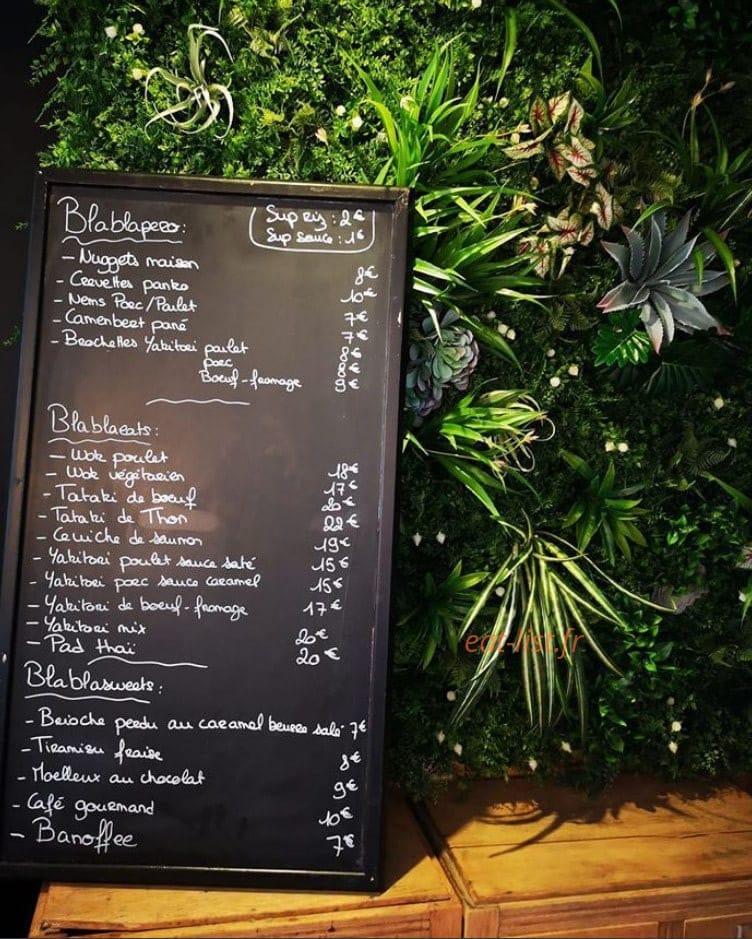 Blablapero:
Sup riz : 2€
Sup sauce : 1€
- Nuggets maison 8€
- Crevettes panko 10€
- Nems Porc/Poulet 7€
- Camembert pané 7€
- Brochettes Yakitori poulet 8€
porc 8€
Boeuf-fromage 9€
Blablaeats:
- Wok poulet 18€
- Wok végétarien 17€
- Tataki de boeuf 20€
- Tataki de Thon 22€
- Ceviche de saumon 19€
- Yakitori poulet sauce saté 15€
- Yakitori porc sauce caramel 15€
- Yakitori de boeuf-fromage 17€
- Yakitori mix 20€
- Pad thaï 20€
Blablasweets:
- Brioche perdu au caramel beurre salé 7€
- Tiramisu fraise 8€
- Moelleux au chocolat 9€
- Café gourmand 10€
- Banoffee 7€
eat-list.fr